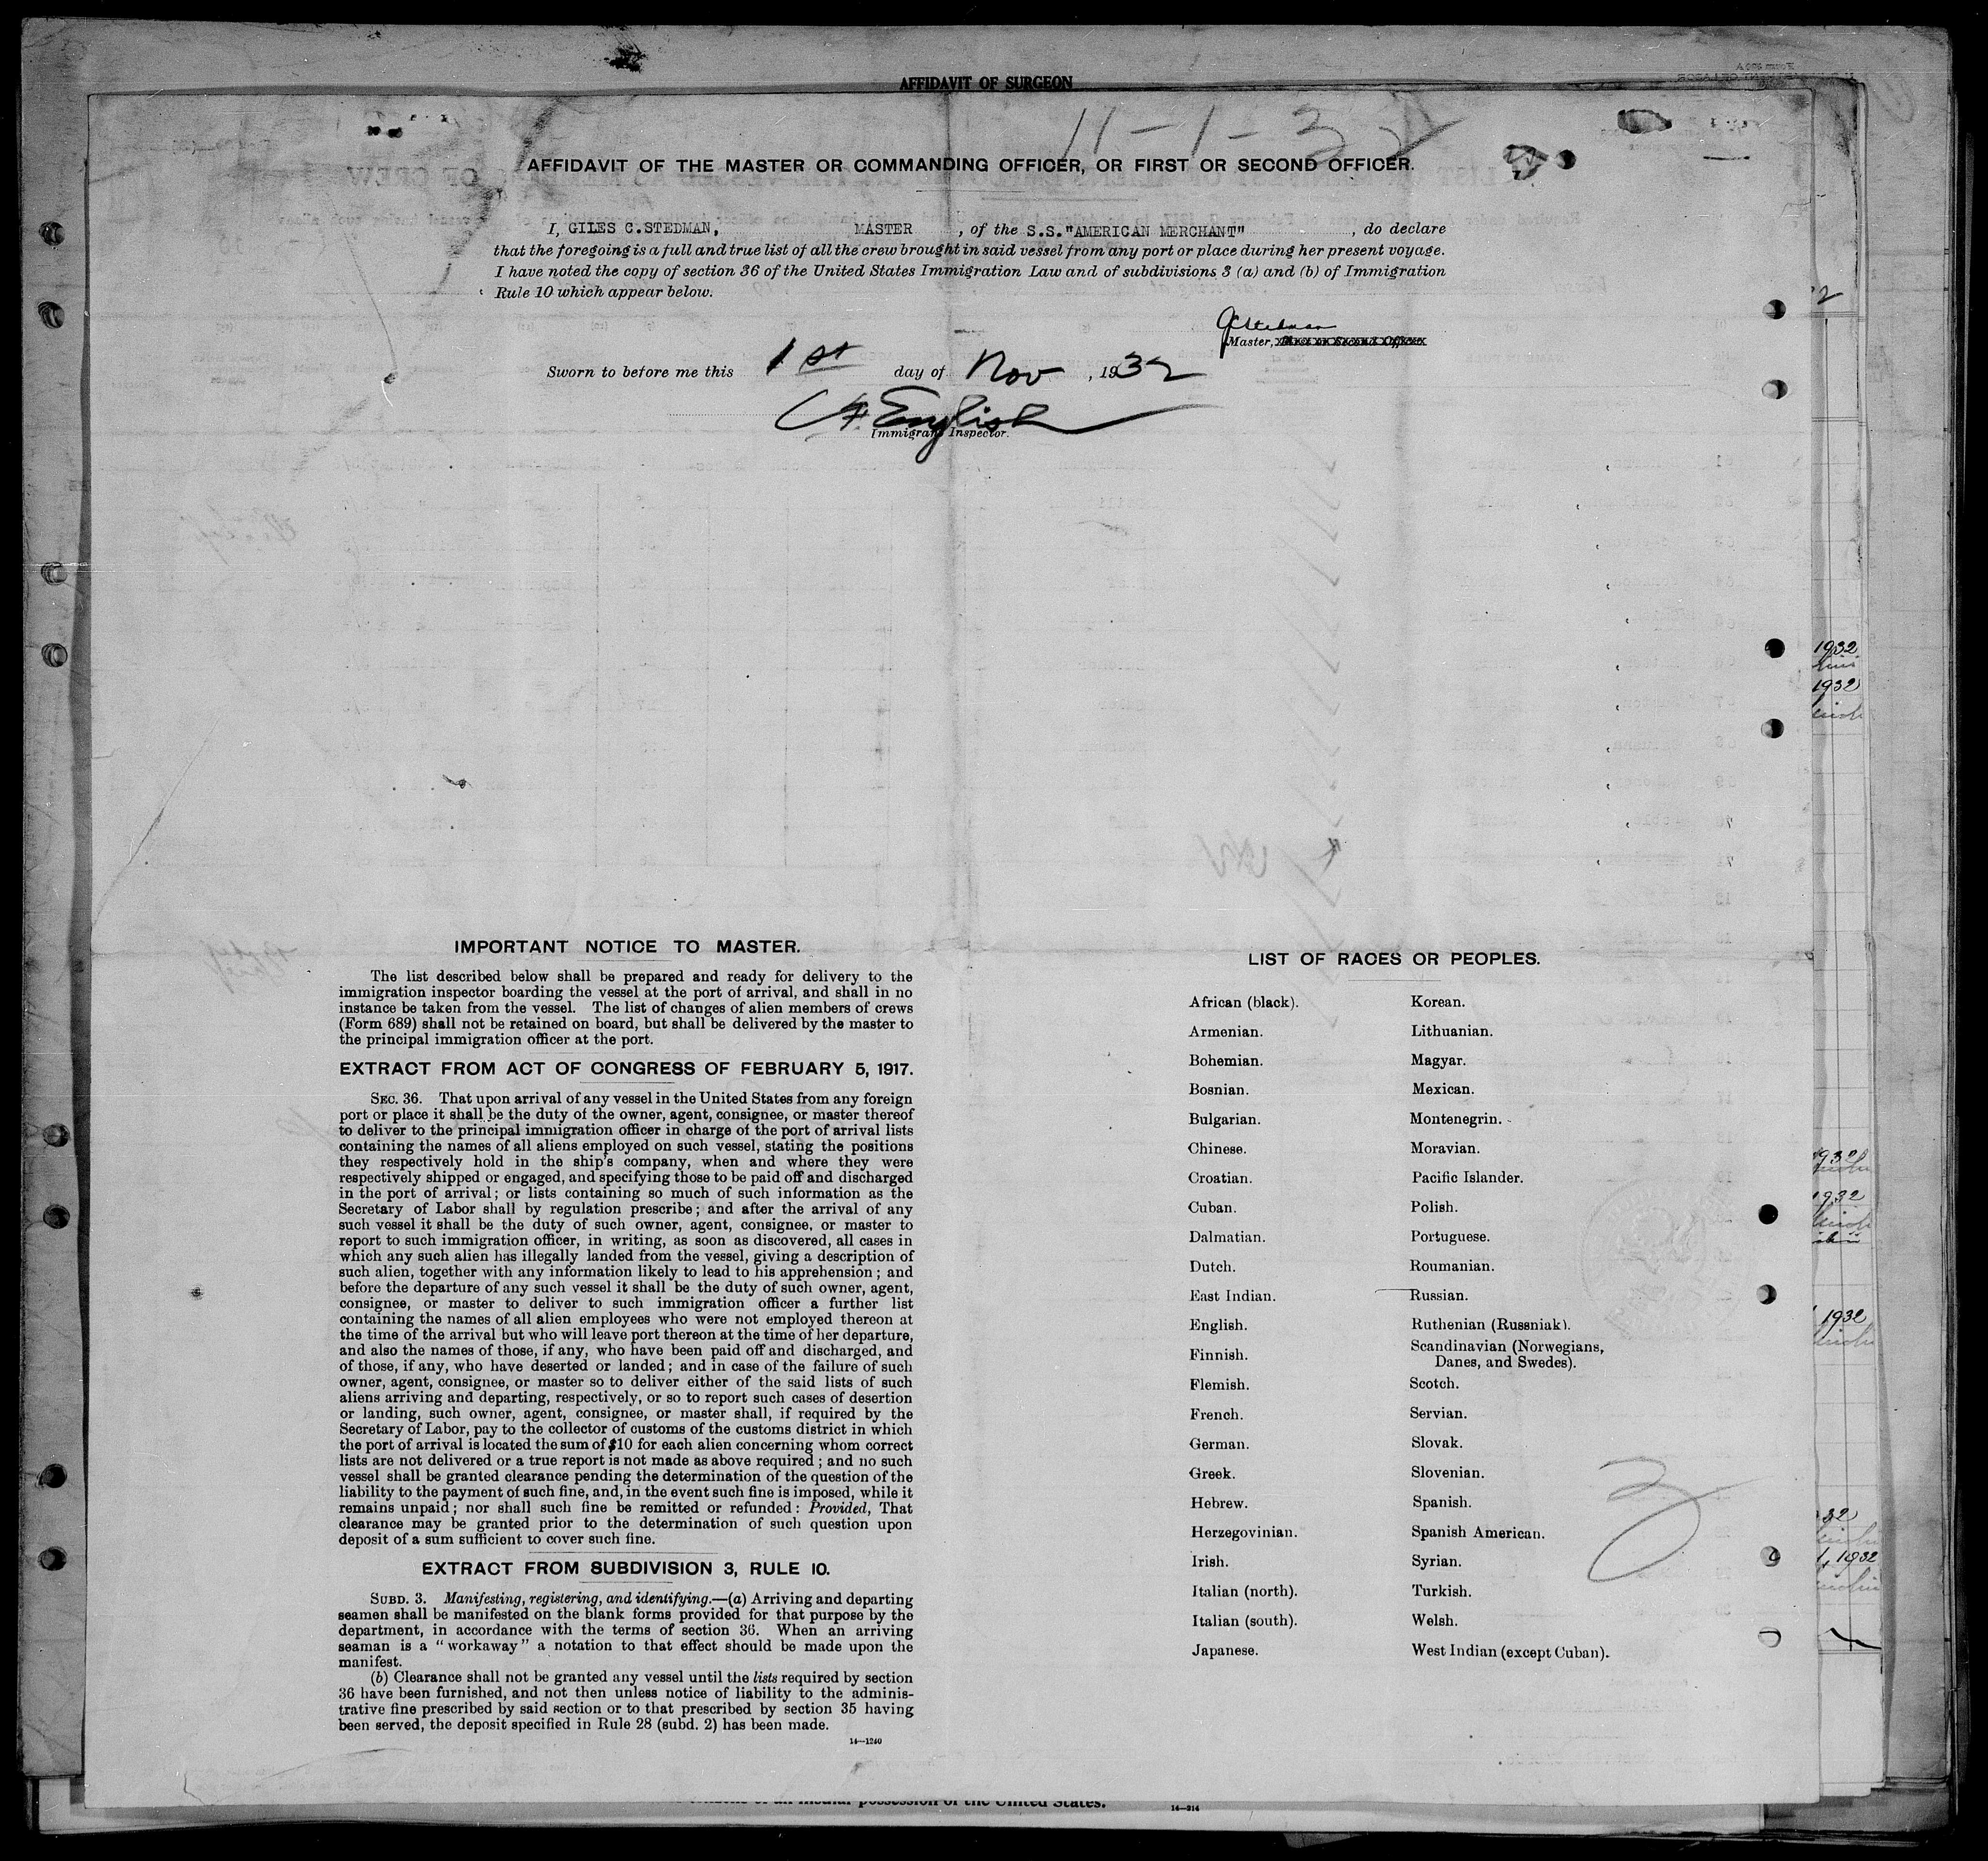 AFFIDAVIT OF SURGEON
11-1-32
AFFIDAVIT OF THE MASTER OR COMMANDING OFFICER, OR FIRST OR SECOND OFFICER.
I, GILES C.STEDMAN, MASTER , of the S.S."AMERICAN MERCHANT" , do declare
that the foregoing is a full and true list of all the crew brought in said vessel from any port or place during her present voyage.
I have noted the copy of section 36 of the United States Immigration Law and of subdivisions 3 (a) and (b) of Immigration
Rule 10 which appear below.
GCStedman
Master, First or Second Officer.
Sworn to before me this 1st day of Nov , 1932
English
Immigrant Inspector.
IMPORTANT NOTICE TO MASTER.
The list described below shall be prepared and ready for delivery to the
immigration inspector boarding the vessel at the port of arrival, and shall in no
instance be taken from the vessel. The list of changes of alien members of crews
(Form 689) shall not be retained on board, but shall be delivered by the master to
the principal immigration officer at the port.
EXTRACT FROM ACT OF CONGRESS OF FEBRUARY 5, 1917.
SEC. 36. That upon arrival of any vessel in the United States from any foreign
port or place it shall be the duty of the owner, agent, consignee, or master thereof
to deliver to the principal immigration officer in charge of the port of arrival lists
containing the names of all aliens employed on such vessel, stating the positions
they respectively hold in the ship's company, when and where they were
respectively shipped or engaged, and specifying those to be paid off and discharged
in the port of arrival; or lists containing so much of such information as the
Secretary of Labor shall by regulation prescribe; and after the arrival of any
such vessel it shall be the duty of such owner, agent, consignee, or master to
report to such immigration officer, in writing, as soon as discovered, all cases in
which any such alien has illegally landed from the vessel, giving a description of
such alien, together with any information likely to lead to his apprehension; and
before the departure of any such vessel it shall be the duty of such owner, agent,
consignee, or master to deliver to such immigration officer a further list
containing the names of all alien employees who were not employed thereon at
the time of the arrival but who will leave port thereon at the time of her departure,
and also the names of those, if any, who have been paid off and discharged, and
of those, if any, who have deserted or landed; and in case of the failure of such
owner, agent, consignee, or master so to deliver either of the said lists of such
aliens arriving and departing, respectively, or so to report such cases of desertion
or landing, such owner, agent, consignee, or master shall, if required by the
Secretary of Labor, pay to the collector of customs of the customs district in which
the port of arrival is located the sum of $10 for each alien concerning whom correct
lists are not delivered or a true report is not made as above required; and no such
vessel shall be granted clearance pending the determination of the question of the
liability to the payment of such fine, and, in the event such fine is imposed, while it
remains unpaid; nor shall such fine be remitted or refunded: Provided, That
clearance may be granted prior to the determination of such question upon
deposit of a sum sufficient to cover such fine.
EXTRACT FROM SUBDIVISION 3, RULE 10.
SUBD. 3. Manifesting, registering, and identifying.—(a) Arriving and departing
seamen shall be manifested on the blank forms provided for that purpose by the
department, in accordance with the terms of section 36. When an arriving
seaman is a "workaway" a notation to that effect should be made upon the
manifest.
(b) Clearance shall not be granted any vessel until the lists required by section
36 have been furnished, and not then unless notice of liability to the adminis-
trative fine prescribed by said section or to that prescribed by section 35 having
been served, the deposit specified in Rule 28 (subd. 2) has been made.
14—1240
LIST OF RACES OR PEOPLES.
African (black).
Armenian.
Bohemian.
Bosnian.
Bulgarian.
Chinese.
Croatian.
Cuban.
Dalmatian.
Dutch.
East Indian.
English.
Finnish.
Flemish.
French.
German.
Greek.
Hebrew.
Herzegovinian.
Irish.
Italian (north).
Italian (south).
Japanese.
Korean.
Lithuanian.
Magyar.
Mexican.
Montenegrin.
Moravian.
Pacific Islander.
Polish.
Portuguese.
Roumanian.
Russian.
Ruthenian (Russniak).
Scandinavian (Norwegians,
Danes, and Swedes).
Scotch.
Servian.
Slovak.
Slovenian.
Spanish.
Spanish American.
Syrian.
Turkish.
Welsh.
West Indian (except Cuban).
3
1932
1932
1932
1932
1932
32
1, 1932
insular possession of the United States.
14—214